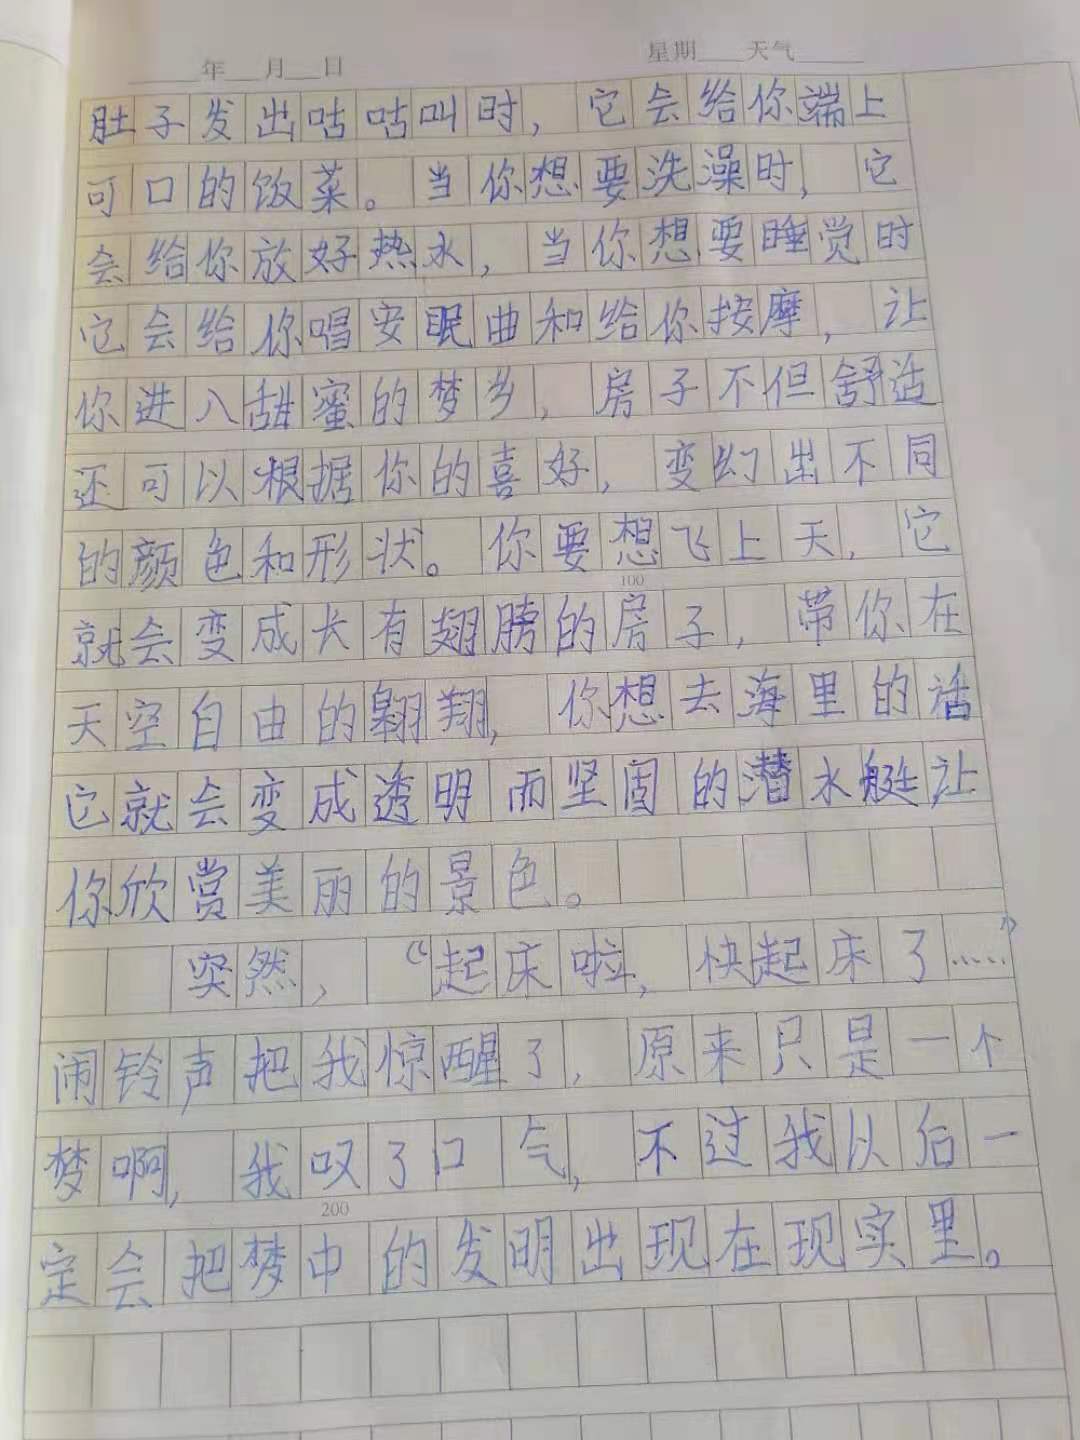 ____年__月__日 星期___天气____
肚子发出咕咕叫时，它会给你端上
可口的饭菜。当你想要洗澡时，它
会给你放好热水，当你想要睡觉时
它会给你唱安眠曲和给你按摩，让
你进入甜蜜的梦乡，房子不但舒适
还可以根据你的喜好，变幻出不同
的颜色和形状。你要想飞上天，它
100
就会变成长有翅膀的房子，带你在
天空自由的翱翔，你想去海里的话
它就会变成透明而坚固的潜水艇让
你欣赏美丽的景色。
突然，“起床啦，快起床了……”
闹铃声把我惊醒了，原来只是一个
梦啊，我叹了口气，不过我以后一
200
定会把梦中的发明出现在现实里。